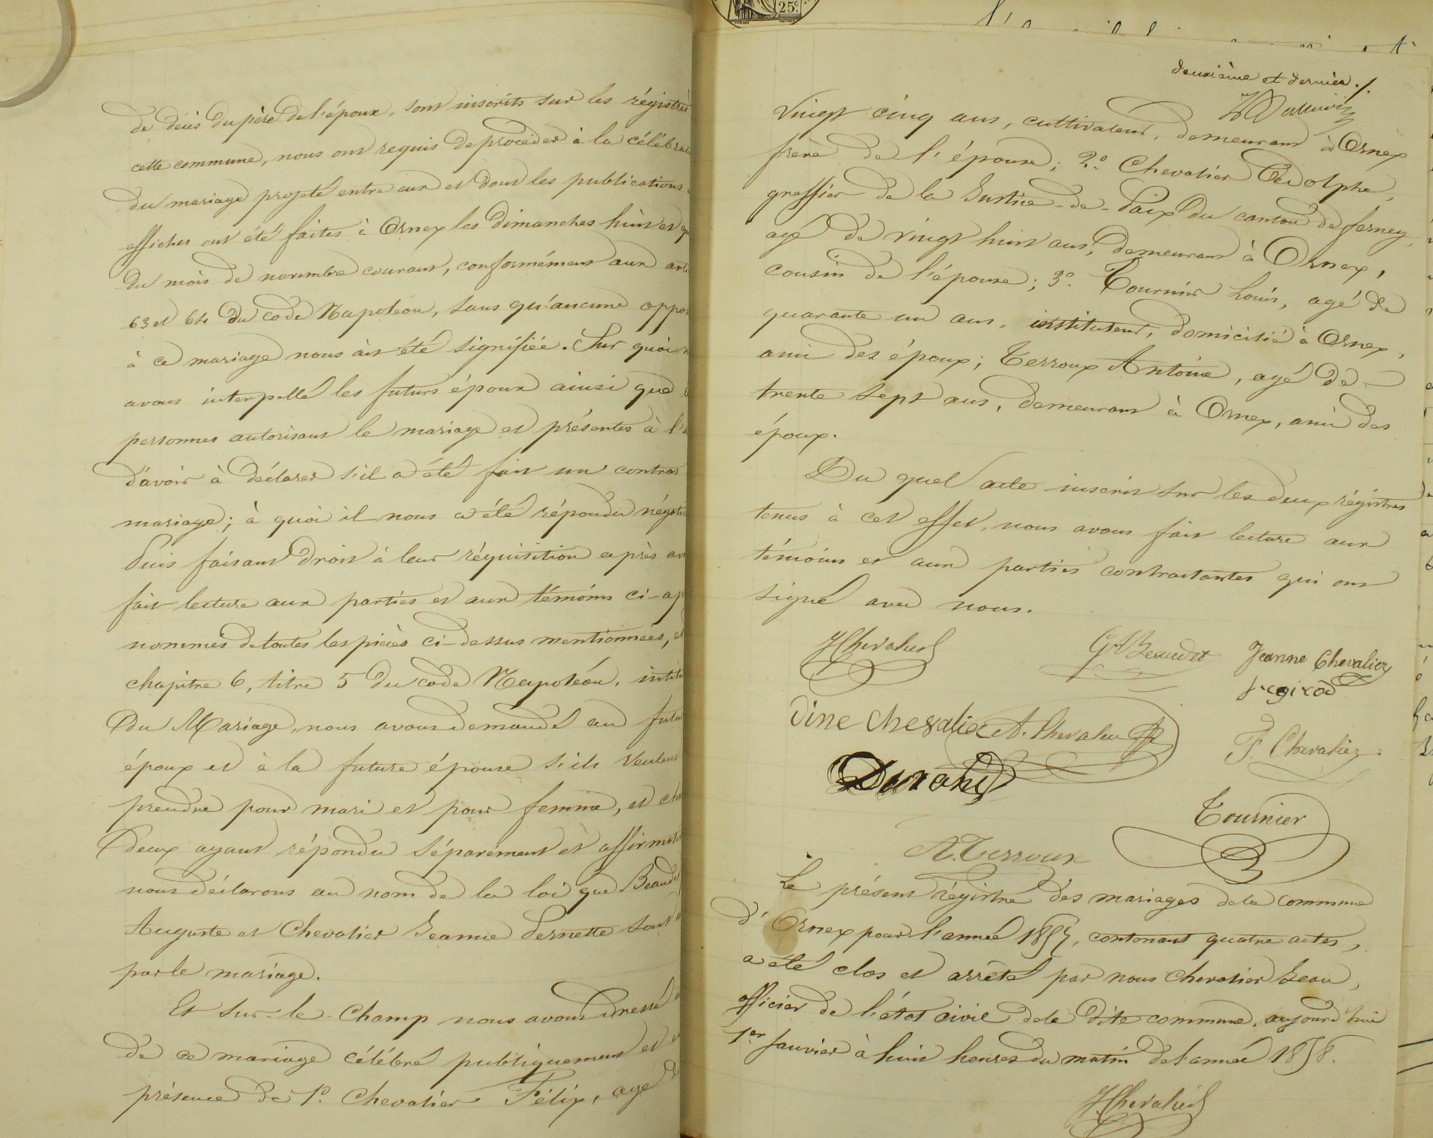 de décès du père de l'époux, sont inscrits sur les régistres
cette commune, nous ont requis de procéder à la célébra
du mariage projeté entre eux et dont les publications
affiches ont été faites à Ornex les dimanches huit et q
du mois de novembre courant, conformément aux art
63 et 64 du code Napoléon, sans qu'aucune oppo
à ce mariage nous ait été signifiée. Sur quoi n
avons interpellé les futurs époux ainsi que
personnes autorisant le mariage et présentes à l'
d'avoir à déclarer s'il a été fait un contrat
mariage; à quoi il nous a été répondu négati
Puis faisant droit à leur réquisition après av
fait lecture aux parties et aux témoins ci-ap
nommés de toutes les pièces ci-dessus mentionnées, et
chapitre 6, titre 5 du code Napoléon, intit
Du Mariage, nous avons demandé au futur
époux et à la future épouse s'ils veulent
prendre pour mari et pour femme, et cha
deux ayant répondu séparément et affirmati
nous déclarons au nom de la loi que Beaud
Auguste et Chevalier Jeanne Pernette sont
par le mariage.
Et sur-le-champ nous avons dressé
de ce mariage célébré publiquement et
présence de 1° Chevalier Félix, agé d
25c
deuxième et dernier./.
vingt cinq ans, cultivateur, demeurant à Ornex
frère de l'épouse; 2° Chevalier Adolphe,
greffier de la Justice-de-Paix du canton de ferney,
agé de vingt huit ans, demeurant à Ornex,
cousin de l'épouse; 3° Tournier Louis, agé de
quarante un ans, instituteur, domicilié à Ornex,
ami des époux; Terroux Antoine, agé de
trente sept ans, demeurant à Ornex, ami des
époux.
Du quel acte inscrit sur les deux régistres
tenus à cet effet, nous avons fait lecture aux
témoins et aux parties contractantes qui ont
signé avec nous.
JChevalier
Jeanne Chevalier
A. Chevalier
F. Chevalier
Tournier
A. Terroux
Le présent régistre des mariages de la commune
d'Ornex pour l'année 1857, contenant quatre actes,
a été clos et arrêté par nous Chevalier Jean,
officier de l'état civil de la dite commune, aujourd'hui
1er Janvier à huit heures du matin de l'année 1858.
JChevalier